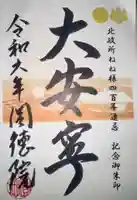 北政所ねね様四百年遠忌
記念御朱印
大安寧
令和六年圓徳院